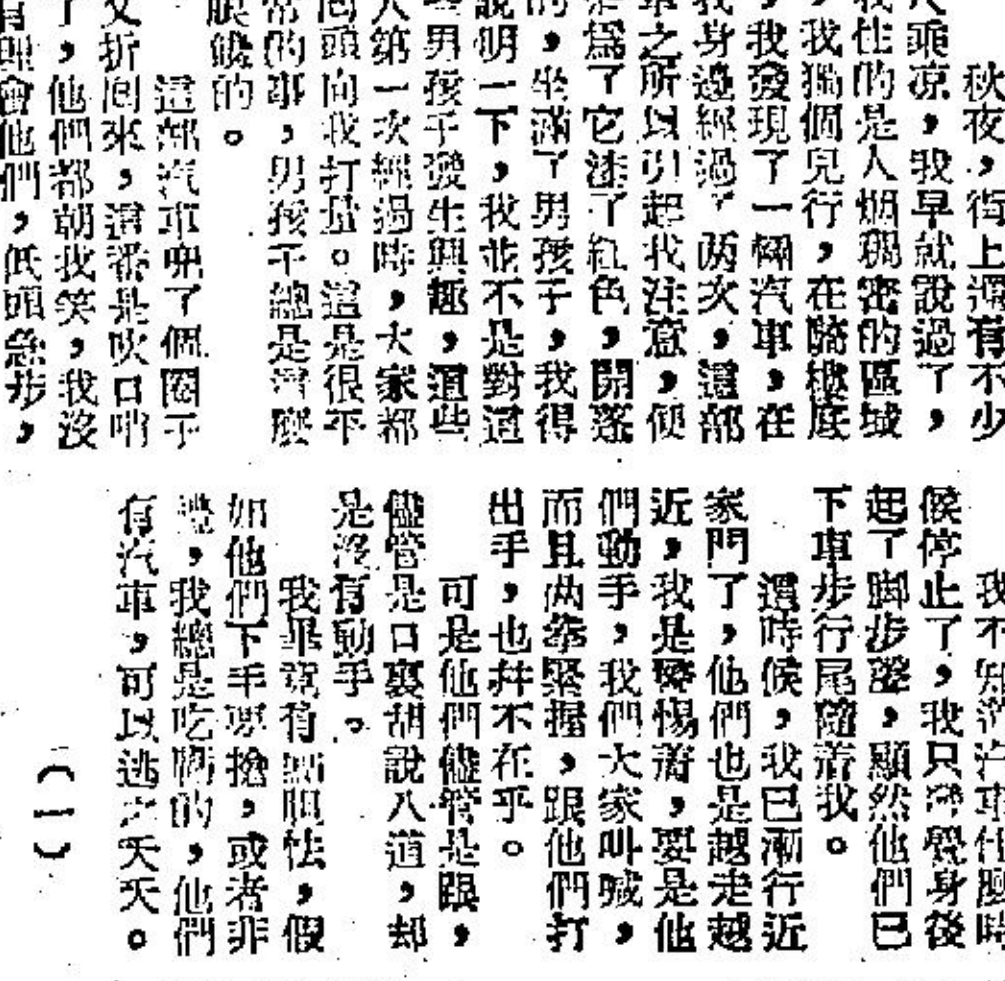 秋夜,街上還有不少
乘凉,我早就說過了,
我住的是人烟稠密的區域
,我獨個兒行,在騎樓底
,我發現了一輛汽車,在
我身邊經過了两次,這部
車之所以引起我注意,便
爲了它漆了紅色,開蓬
的,坐滿了男孩子,我得
說明一下,我並不是對這
些男孩子發生興趣,這些
人第一次經過時,大家都
回頭向我打量。這是很平
常的事,男孩子總是這麼
饞的。
這部汽車兜了個圈子
又折回來,這番是吹口哨
了,他們都朝我笑,我沒
有理會他們,低頭急步,
我不知道汽車什麼時
候停止了,我只覺身後
起了脚步聲,顯然他們已
下車步行尾隨着我。
這時候,我已漸行近
家門了,他們也是越走越
近,我是警惕着,要是他
們動手,我們大家叫喊,
而且两拳緊握,跟他們打
出手,也并不在乎。
可是他們儘管是跟,
儘管是口裏胡說八道,却
是沒有動手。
我畢竟有點胆怯,假
如他們下手要搶,或者非
禮,我總是吃虧的,他們
有汽車,可以逃之夭夭。
(一)